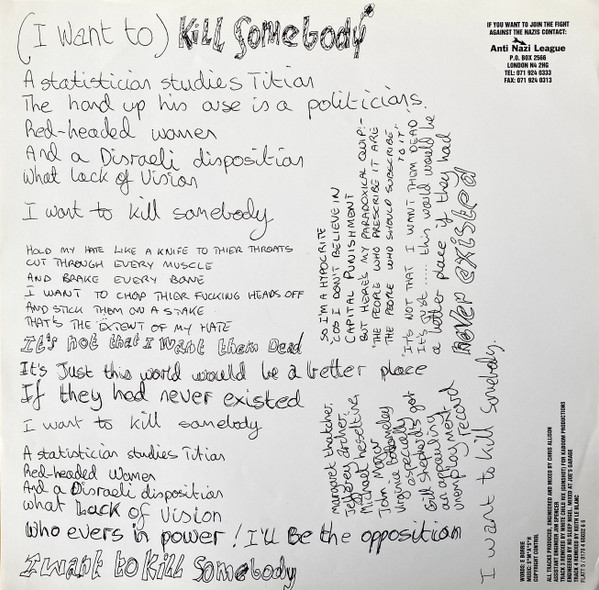 (I want to) Kill Somebody*
IF YOU WANT TO JOIN THE FIGHT
AGAINST THE NAZIS CONTACT:
Anti Nazi League
P.O. BOX 2566
LONDON N4 2HG
TEL: 071 924 0333
FAX: 071 924 0313
A statistician studies Titian
The hand up his arse is a politicians.
Red-headed women
And a Disraeli disposition
What Lack of Vision
I want to kill somebody
HOLD MY HATE LIKE A KNIFE TO THIER THROATS
CUT THROUGH EVERY MUSCLE
AND BRAKE EVERY BONE
I WANT TO CHOP THIER FUCKING HEADS OFF
AND STICK THEM ON A STAKE
THAT'S THE EXTENT OF MY HATE
It's not that I want them Dead
It's Just this world would be a better place
If they had never existed
I want to kill somebody
A statistician studies Titian
Red-headed Women
And a Disraeli disposition
what Lack of Vision
Who evers in power! I'll Be the opposition
I want to Kill Somebody
SO I'M A HYPOCRITE
'COS I DON'T BELIEVE IN
CAPITAL PUNISHMENT
BUT HERE'S MY PARADOXICAL QUIP:-
"THE PEOPLE WHO PRESCRIBE IT ARE
THE PEOPLE WHO SHOULD SUBSCRIBE
TO IT"
"IT'S NOT THAT I WANT THEM DEAD!
It's Just ..... this world would be
a better place if they had
never existed
margaret thatcher,
Jeffrey archer,
Michael heseltine,
John Major
Virginia Bottomley
especially
Gill shepherd's got
an appauling
unemployment
record
I want to kill Somebody.
WORDS: E BORRIE
MUSIC: S*M*A*S*H
COPYRIGHT CONTROL
ALL TRACKS PRODUCED, ENGINEERED AND MIXED BY CHRIS ALLISON
ASSISTANT ENGINEER JON SPENCER
ENGINEERED BY NO SLEEP NIGEL. MIXED AT JOE'S GARAGE
TRACK 4 REMIXED BY KEITH LE BLANC